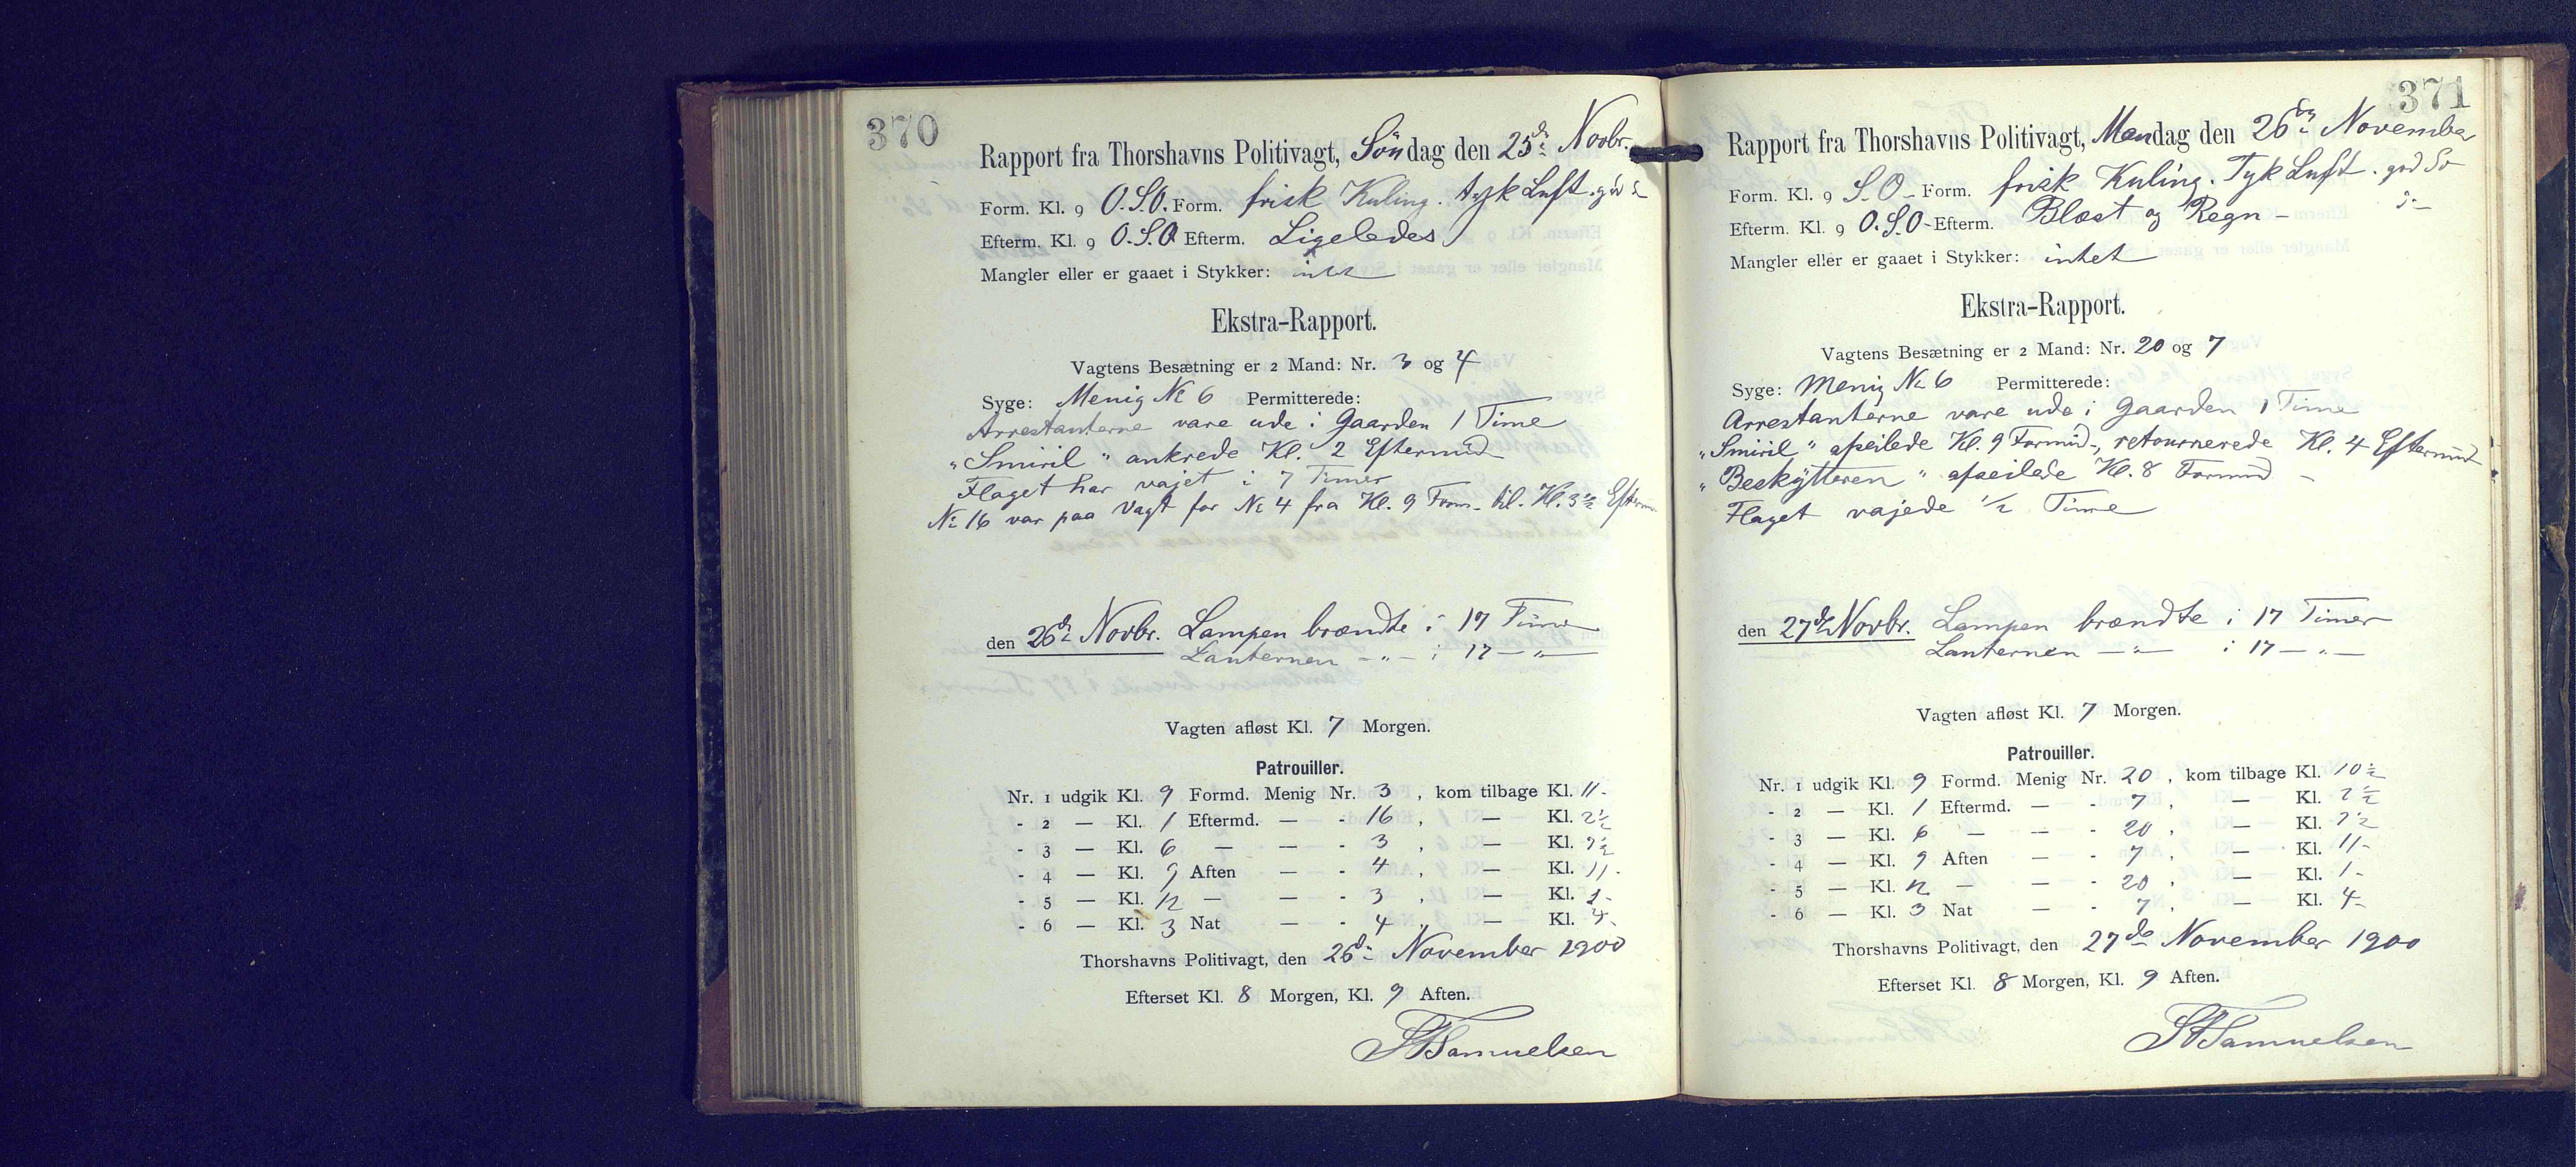 370
Rapport fra Thorshavns Politivagt, Søndag den 25d: Novbr.
Form. Kl. 9 O.S.O. Form. frisk Kuling. tyk Luft. god
Efterm. Kl. 9 O.S.O Efterm. Ligeledes
Mangler eller er gaaet i Stykker: intet
Ekstra-Rapport.
Vagtens Besætning er 2 Mand: Nr. 3 og 4
Syge: Menig № 6 Permitterede:
Arrestanterne vare ude i Gaarden 1 Time
"Smiril" ankrede Kl. 2 Eftermid
Flaget har vajet i 7 Timer
№ 16 var paa Vagt for № 4 fra Kl. 9 Form. til Kl. 3½ Efterm
den 26d: Novbr. Lampen brændte i 17 Timer
Lanternen -"- i 17 -"-
Vagten afløst Kl. 7 Morgen.
Patrouiller.
Nr. 1 udgik Kl. 9 Formd. Menig Nr. 3 , kom tilbage Kl. 11-
- 2 — Kl. 1 Eftermd. — - 16 , — Kl. 2½
- 3 — Kl. 6 — — - 3 , — Kl. 7½
- 4 — Kl. 9 Aften — - 4 , — Kl. 11-
- 5 — Kl. 12 — — - 3 , — Kl. 1-
- 6 — Kl. 3 Nat — - 4 , — Kl. 4-
Thorshavns Politivagt, den 26d: November 1900
Efterset Kl. 8 Morgen, Kl. 9 Aften.
Samuelsen
371
Rapport fra Thorshavns Politivagt, Mandag den 26de November
Form. Kl. 9 S.O- Form. frisk Kuling. Tyk Luft. god So
Efterm. Kl. 9 O.S.O- Efterm. Blæst og Regn -
Mangler eller er gaaet i Stykker: intet
Ekstra-Rapport.
Vagtens Besætning er 2 Mand: Nr. 20 og 7
Syge: Menig № 6 Permitterede:
Arrestanterne vare ude i Gaarden 1 Time
"Smiril" afseilede Kl. 9 Formid-, retournerede Kl. 4 Eftermid
"Beskytteren" afseilede Kl. 8 Formid -
Flaget vajede ½ Time
den 27de Novbr. Lampen brændte i 17 Timer
Lanternen -"- i 17 -"-
Vagten afløst Kl. 7 Morgen.
Patrouiller.
Nr. 1 udgik Kl. 9 Formd. Menig Nr. 20 , kom tilbage Kl. 10½
- 2 — Kl. 1 Eftermd. — - 7 , — Kl. 2½
- 3 — Kl. 6 — — - 20 , — Kl. 7½
- 4 — Kl. 9 Aften — - 7 , — Kl. 11-
- 5 — Kl. 12 — — - 20 , — Kl. 1-
- 6 — Kl. 3 Nat — - 7 , — Kl. 4-
Thorshavns Politivagt, den 27de November 1900
Efterset Kl. 8 Morgen, Kl. 9 Aften.
Samuelsen